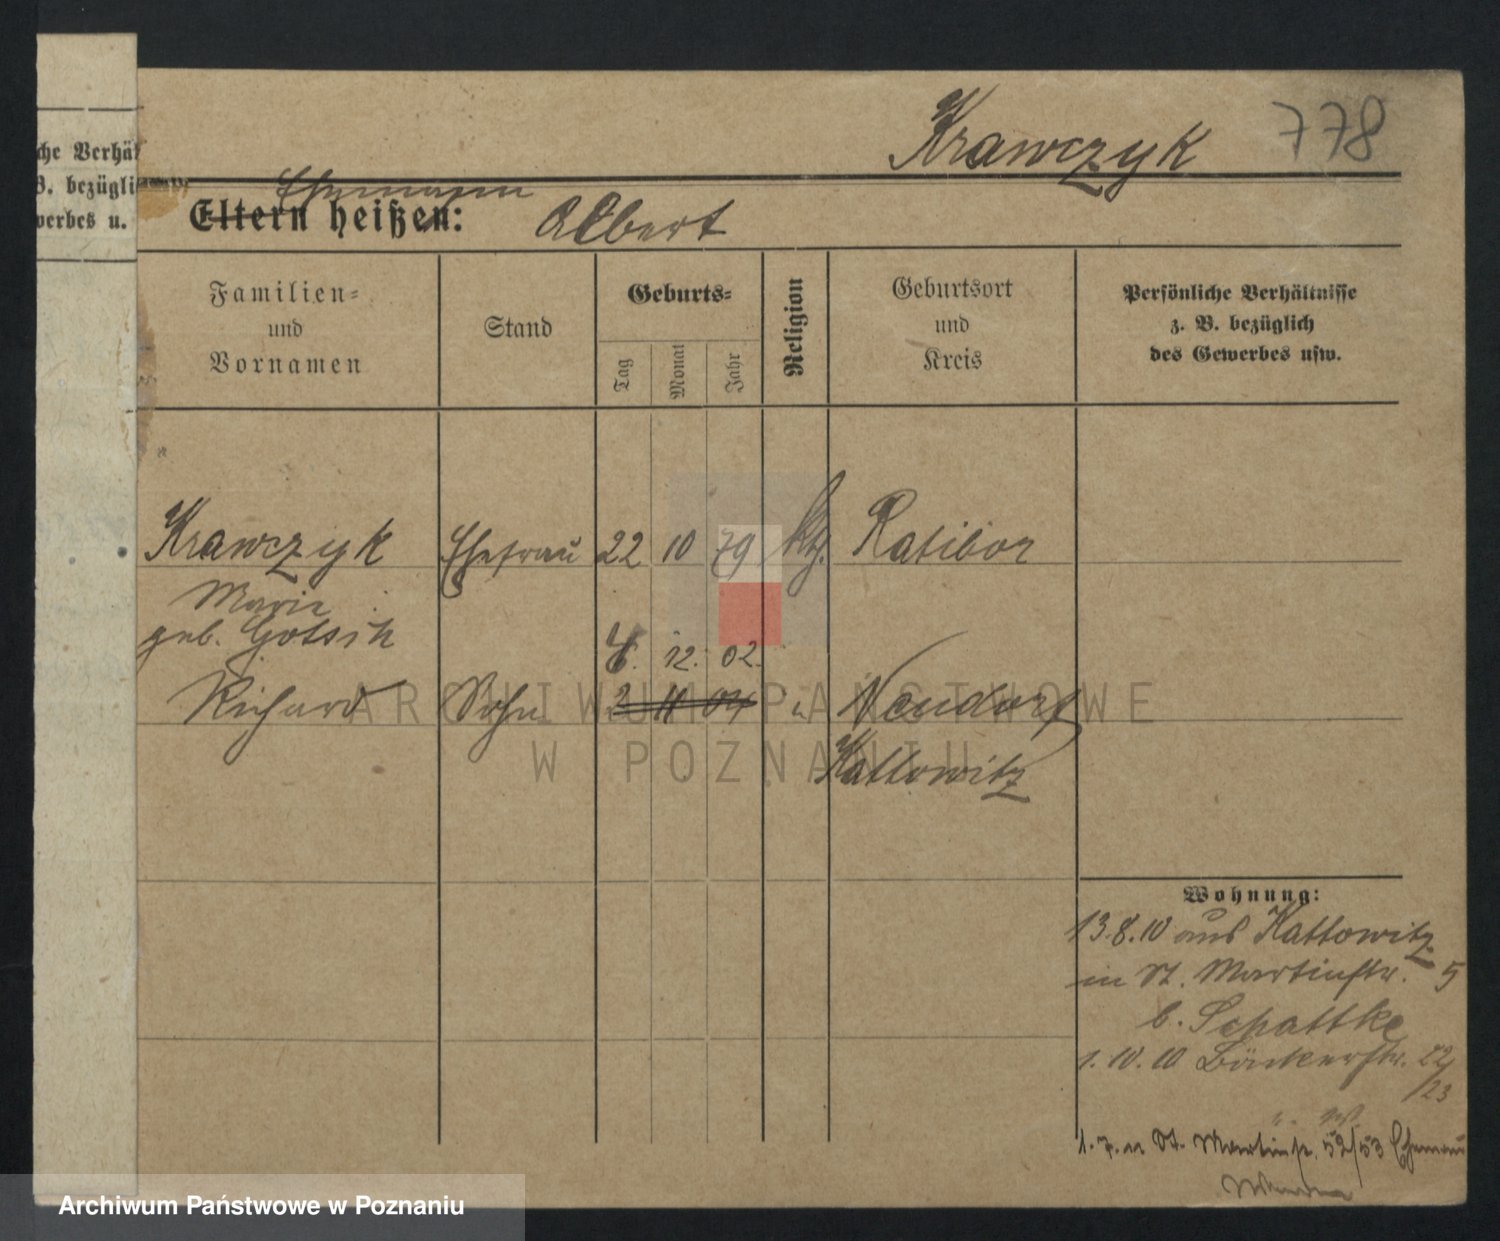 Krawczyk 778
che Verhäl
B. bezügli
verbes u.
Ehemann
Eltern heißen: Albert
Familien=
und
Vornamen
Stand
Geburts=
Tag
Monat
Jahr
Religion
Geburtsort
und
Kreis
Persönliche Verhältnisse
z. B. bezüglich
des Gewerbes usw.
Krawczyk Ehefrau 22 10 79 kth. Ratibor
Marie
geb.
12. 02.
Richard Sohn 2 11 04 " Neudorf
Kattowitz
Wohnung:
13.8.10 aus Kattowitz
in St. Martinstr. 5
b. Schattke
1.10.10 Bäckerstr. 22
/23
1.7.11 St. Martinstr. 52/53 Ehemann
ARCHIWUM PAŃSTWOWE
W POZNANIU
Archiwum Państwowe w Poznaniu